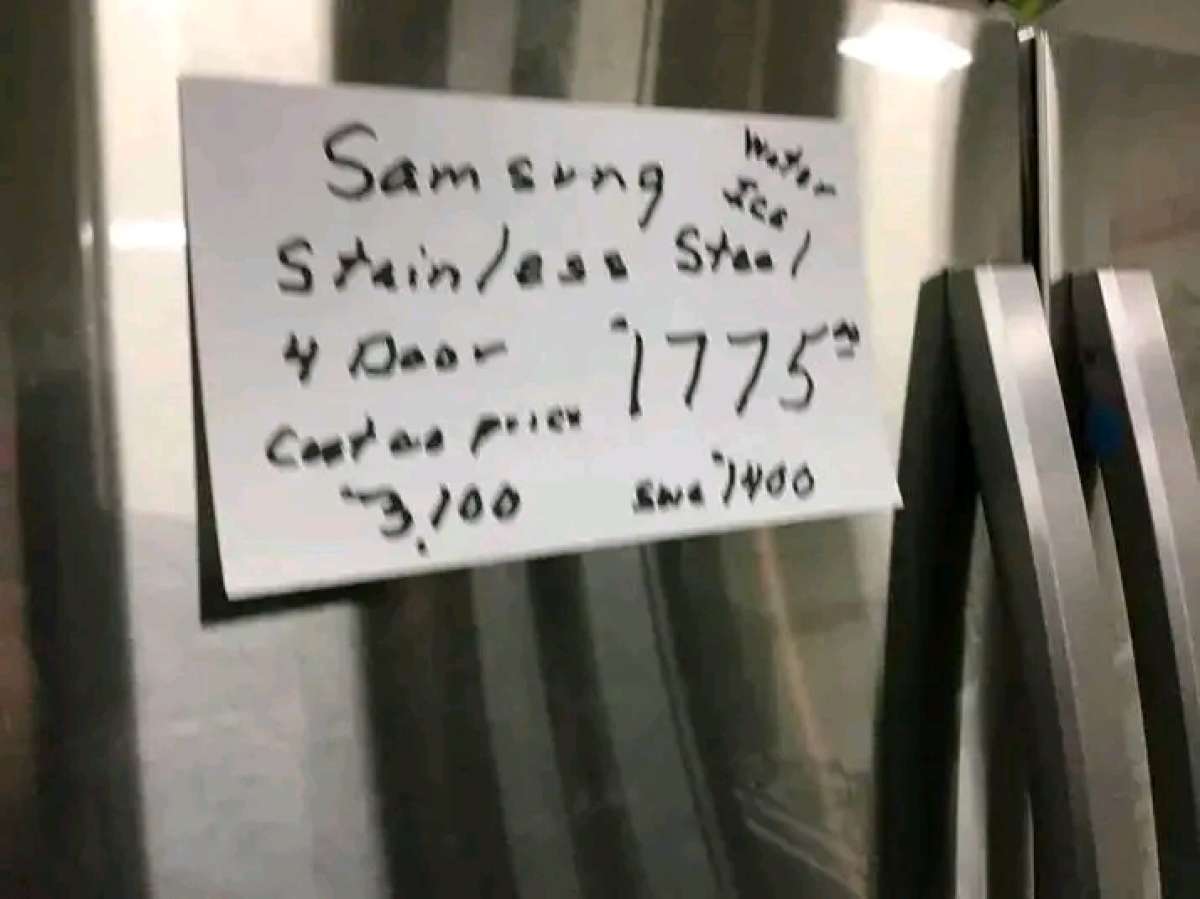 Samsung
Water
Ice
Stainless Steel
4 Door
1775
Costco price
3,100
save 1400